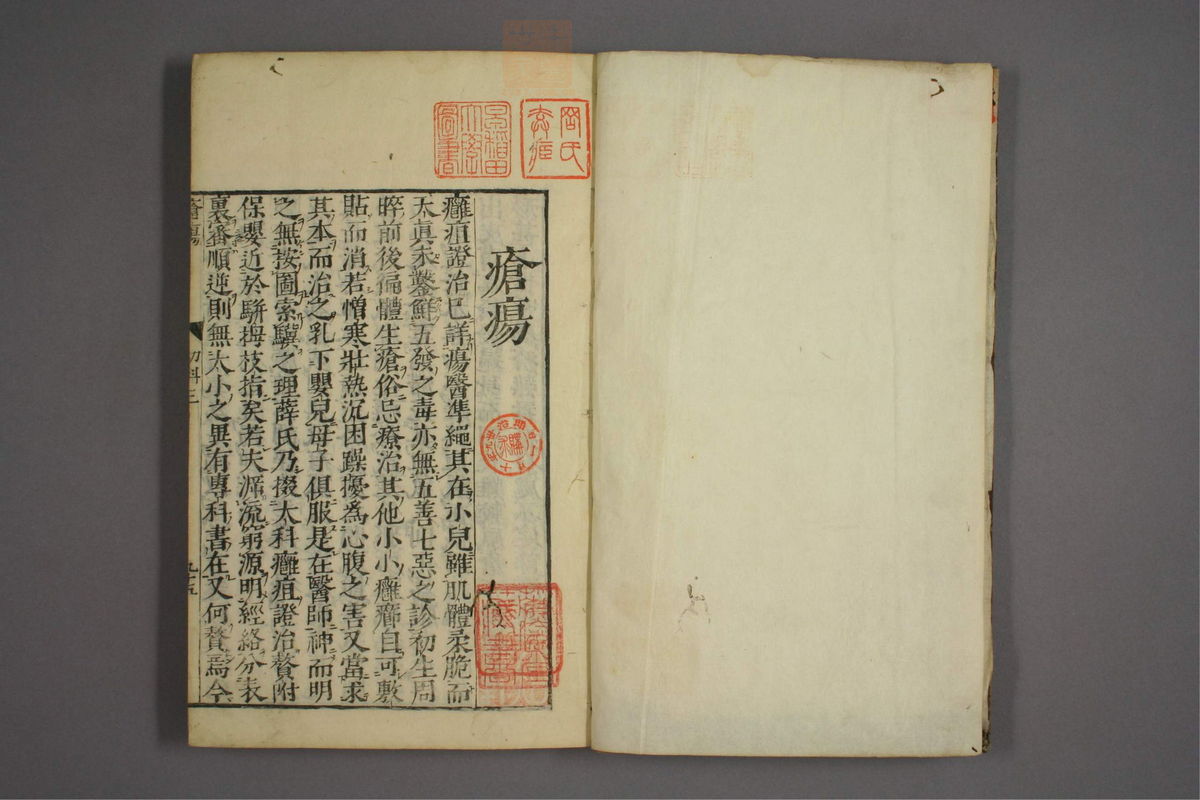 瘡瘍
癰疽證治已詳瘍醫準繩其在小兒雖肌體柔脆而
大眞未鑿鮮五發之毒亦無五善七惡之診初生周
晬前後徧體生瘡俗忌療治其他小小癰癤自可敷
貼而消若憎寒壯熱沉困躁擾爲心腹之害又當求
其本而治之乳下嬰兒母子俱服是在醫師神而明
之無按圖索驥之理薛氏乃掇大科癰疽證治贅附
保嬰近於駢拇枝指矣若夫溯流窮源明經絡分表
裏審順逆則無大小之異有專科書在又何贅焉今
瘡瘍
幼科三
九十五
早稲田
大學
圖書